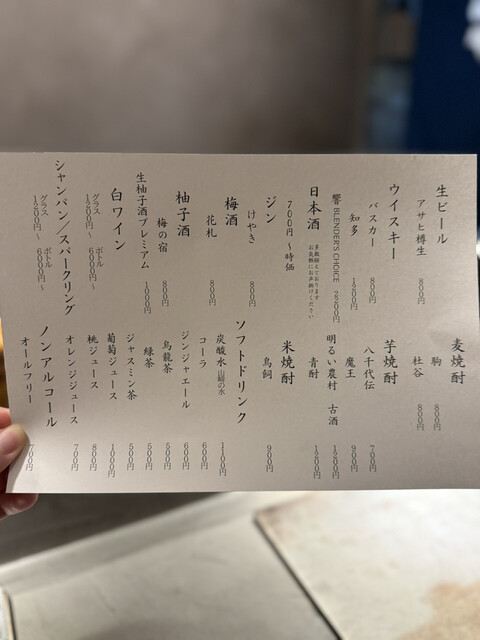 生ビール
アサヒ樽生 800円
ウイスキー
バスカー 800円
知多 1200円
響 BLENDER'S CHOICE 2500円
日本酒
多数揃えております
お気軽にお声掛けください
700円〜時価
ジン
けやき 800円
梅酒
花札 800円
柚子酒
梅の宿 800円
生柚子酒プレミアム 1000円
白ワイン
グラス 1200円〜
ボトル 6000円〜
シャンパン／スパークリング
グラス 1200円〜
ボトル 6000円〜
麦焼酎
駒 800円
杜谷 800円
芋焼酎
八千代伝 700円
魔王 900円
明るい農村 古酒 1200円
青酎 1200円
米焼酎
鳥飼 900円
ソフトドリンク
炭酸水 山崎の水 1100円
コーラ 600円
ジンジャエール 600円
烏龍茶 500円
緑茶 500円
ジャスミン茶 500円
葡萄ジュース 1000円
桃ジュース 800円
オレンジジュース 700円
ノンアルコール
オールフリー 700円